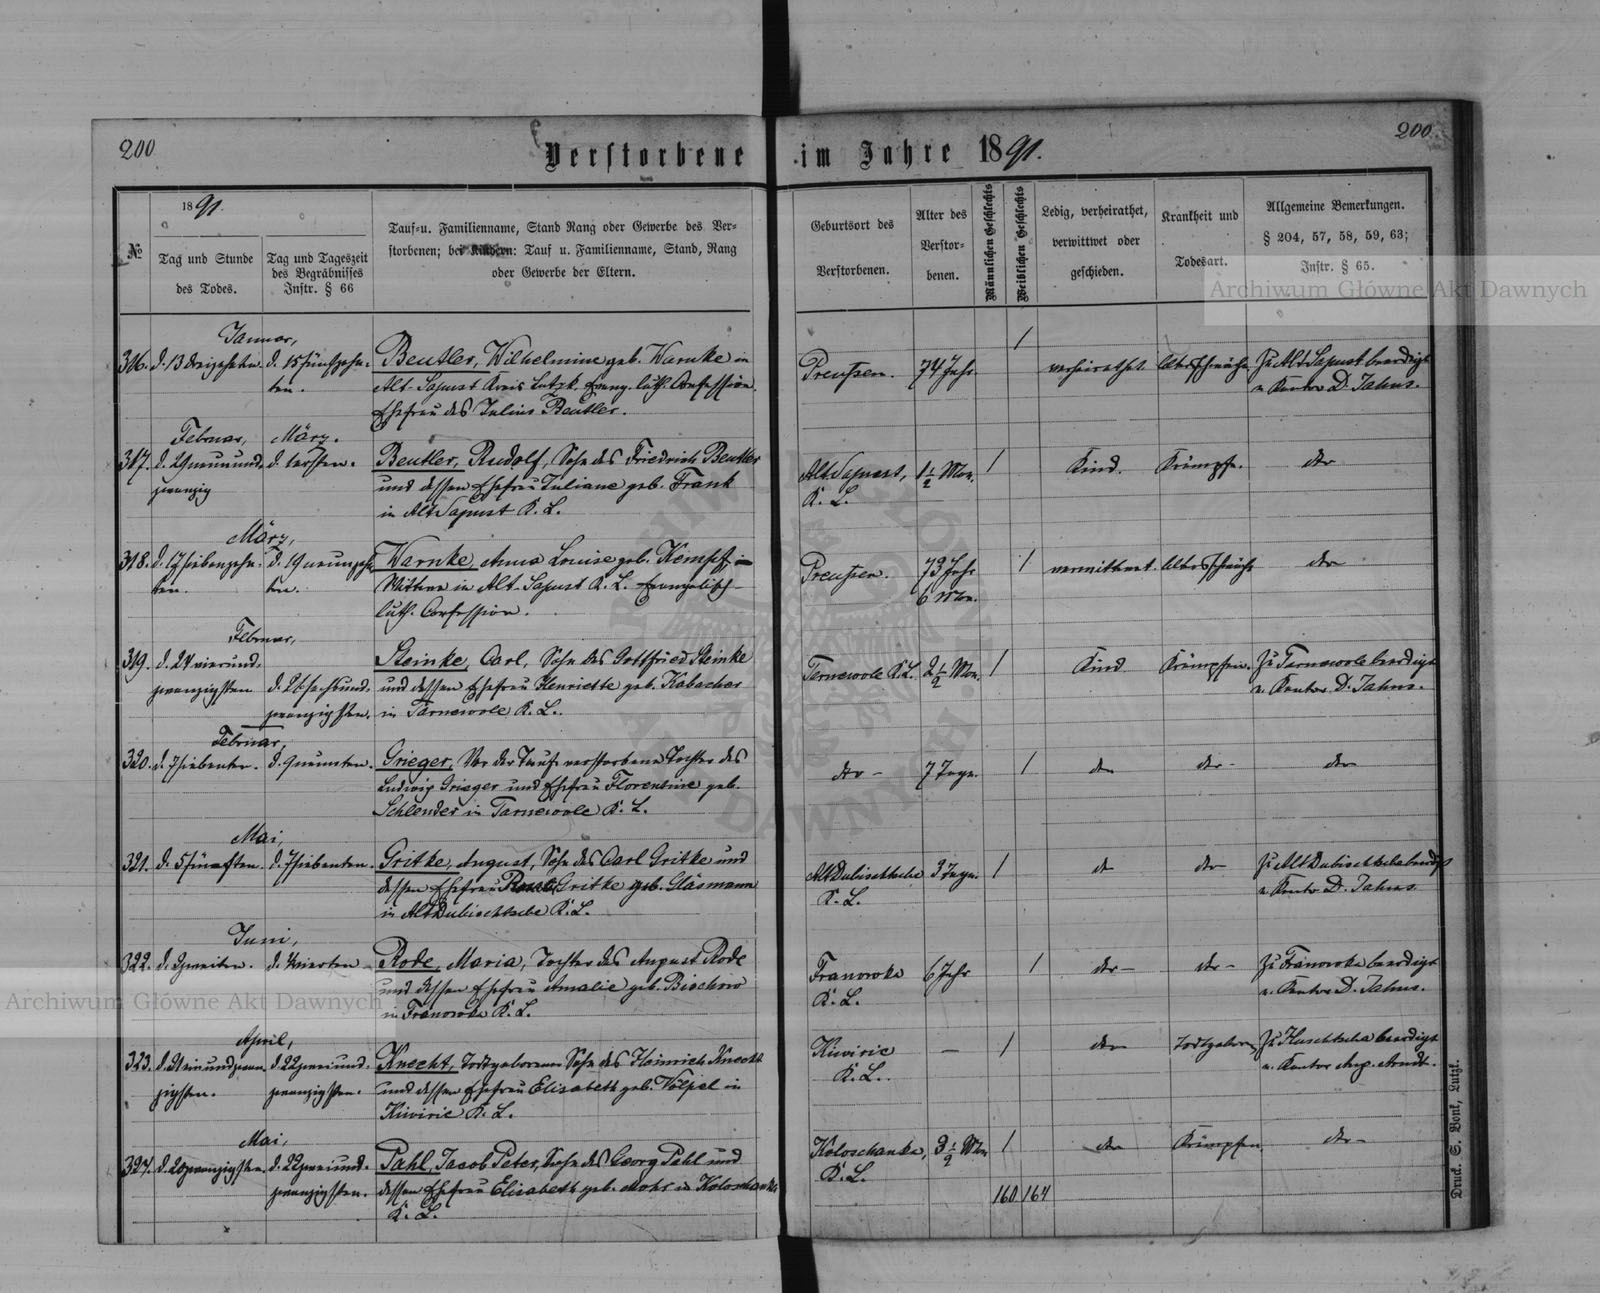 200
200
Verstorbene im Jahre 1891.
№
1891.
Tag und Stunde
des Todes.
Tag und Tageszeit
des Begräbnisses
Instr. § 66
Tauf-u. Familienname, Stand Rang oder Gewerbe des Ver-
storbenen; bei Kindern: Tauf u. Familienname, Stand, Rang
oder Gewerbe der Eltern.
Geburtsort des
Verstorbenen.
Alter des
Verstor-
benen.
Männlichen Geschlechts
Weiblichen Geschlechts
Ledig, verheirathet,
verwittwet oder
geschieden.
Krankheit und
Todesart.
Allgemeine Bemerkungen.
§ 204, 57, 58, 59, 63;
Instr. § 65.
Archiwum Główne Akt Dawnych
Januar,
316. d. 13 dreizehnten d. 15 fünfzehn- Beutler, Wilhelmine geb. Warnke in Preußen. 74 Jahr. 1 verheirathet Altersschwäche Zu Alt Sapust beerdigt
ten. Alt-Sapust Kreis Lutzk. Evang. luth. Confession. v. Kantor D. Jahns.
Ehefrau des Julius Beutler.
Februar, März.
317. d. 29 neunund- d. 1 ersten. Beutler, Rudolf, Sohn des Friedrich Beutler Alt Sapust, 1 1/2 Mon. 1 Kind. Krämpfe. dto
zwanzig und dessen Ehefrau Juliane geb. Frank K. L.
in Alt Sapust K. L.
März,
318. d. 17 siebenzehn- d. 19 neunzehn- Warnke, Anna Louise geb. Kempf in Preußen. 73 Jahr 1 verwittwet. Altersschwäche dto
ten. ten. Wittwe in Alt-Sapust K. L. Evangelisch- 6 Mon.
luth. Confession.
Februar,
319. d. 24 vierund- Steinke, Carl, Sohn des Gottfried Steinke Tarnewole K. L. 2 1/2 Mon. 1 Kind Krämpfen. Zu Tarnewole beerdigt
zwanzigsten d. 26 sechsund- und dessen Ehefrau Henriette geb. Kabacher v. Kantor D. Jahns.
zwanzigsten. in Tarnewole K. L.
Februar,
320. d. 7 siebenten. d. 9 neunten. Grieger, Vor der Taufe verstorbene Tochter des dto - 7 Tage. 1 dto dto - dto
Ludwig Grieger und Ehefrau Florentine geb.
Schlender in Tarnewole K. L.
Mai,
321. d. 5 fünften. d. 7 siebenten. Gritke, August, Sohn des Carl Gritke und Alt Dubischtsche 3 Tage. 1 dto dto Zu Alt Dubischtsche beerdigt
dessen Ehefrau Gritke geb. Gläsmann K. L. v. Kantor D. Jahns.
in Alt Dubischtsche K. L.
Juni,
322. d. 2 zweiten. d. 4 vierten Rode, Maria, Tochter des August Rode Franowka 6 Jahr 1 dto - dto - Zu Franowka beerdigt
und dessen Ehefrau Amalie geb. Bischow K. L. v. Kantor D. Jahns.
in Franowka K. L.
Archiwum Główne Akt Dawnych
April,
323. d. 21 einundzwan- d. 22 zweiund- Knecht, Todtgeborener Sohn des Heinrich Knecht Kiwirie — 1 dto Todtgeboren Zu Huschtscha beerdigt
zigsten. zwanzigsten. und dessen Ehefrau Elisabeth geb. Völpel in K. L. v. Kantor Aug. Arndt.
Kiwirie K. L.
Mai,
324. d. 20 zwanzigsten d. 22 zweiund- Pahl, Jacob Peter, Sohn des Georg Pahl und Koloschanka, 3 1/2 Mon 1 dto Krämpfen dto -
zwanzigsten. dessen Ehefrau Elisabeth geb. Mohr in Koloschanka K. L.
K. L.
160 164
Druck. S. Bonk, Lutzk.